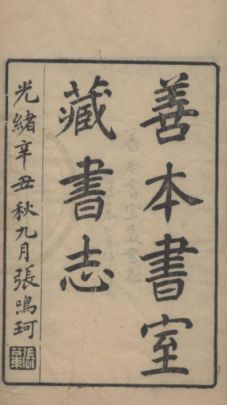 善本書室
藏書志
光緒辛丑秋九月張鳴珂